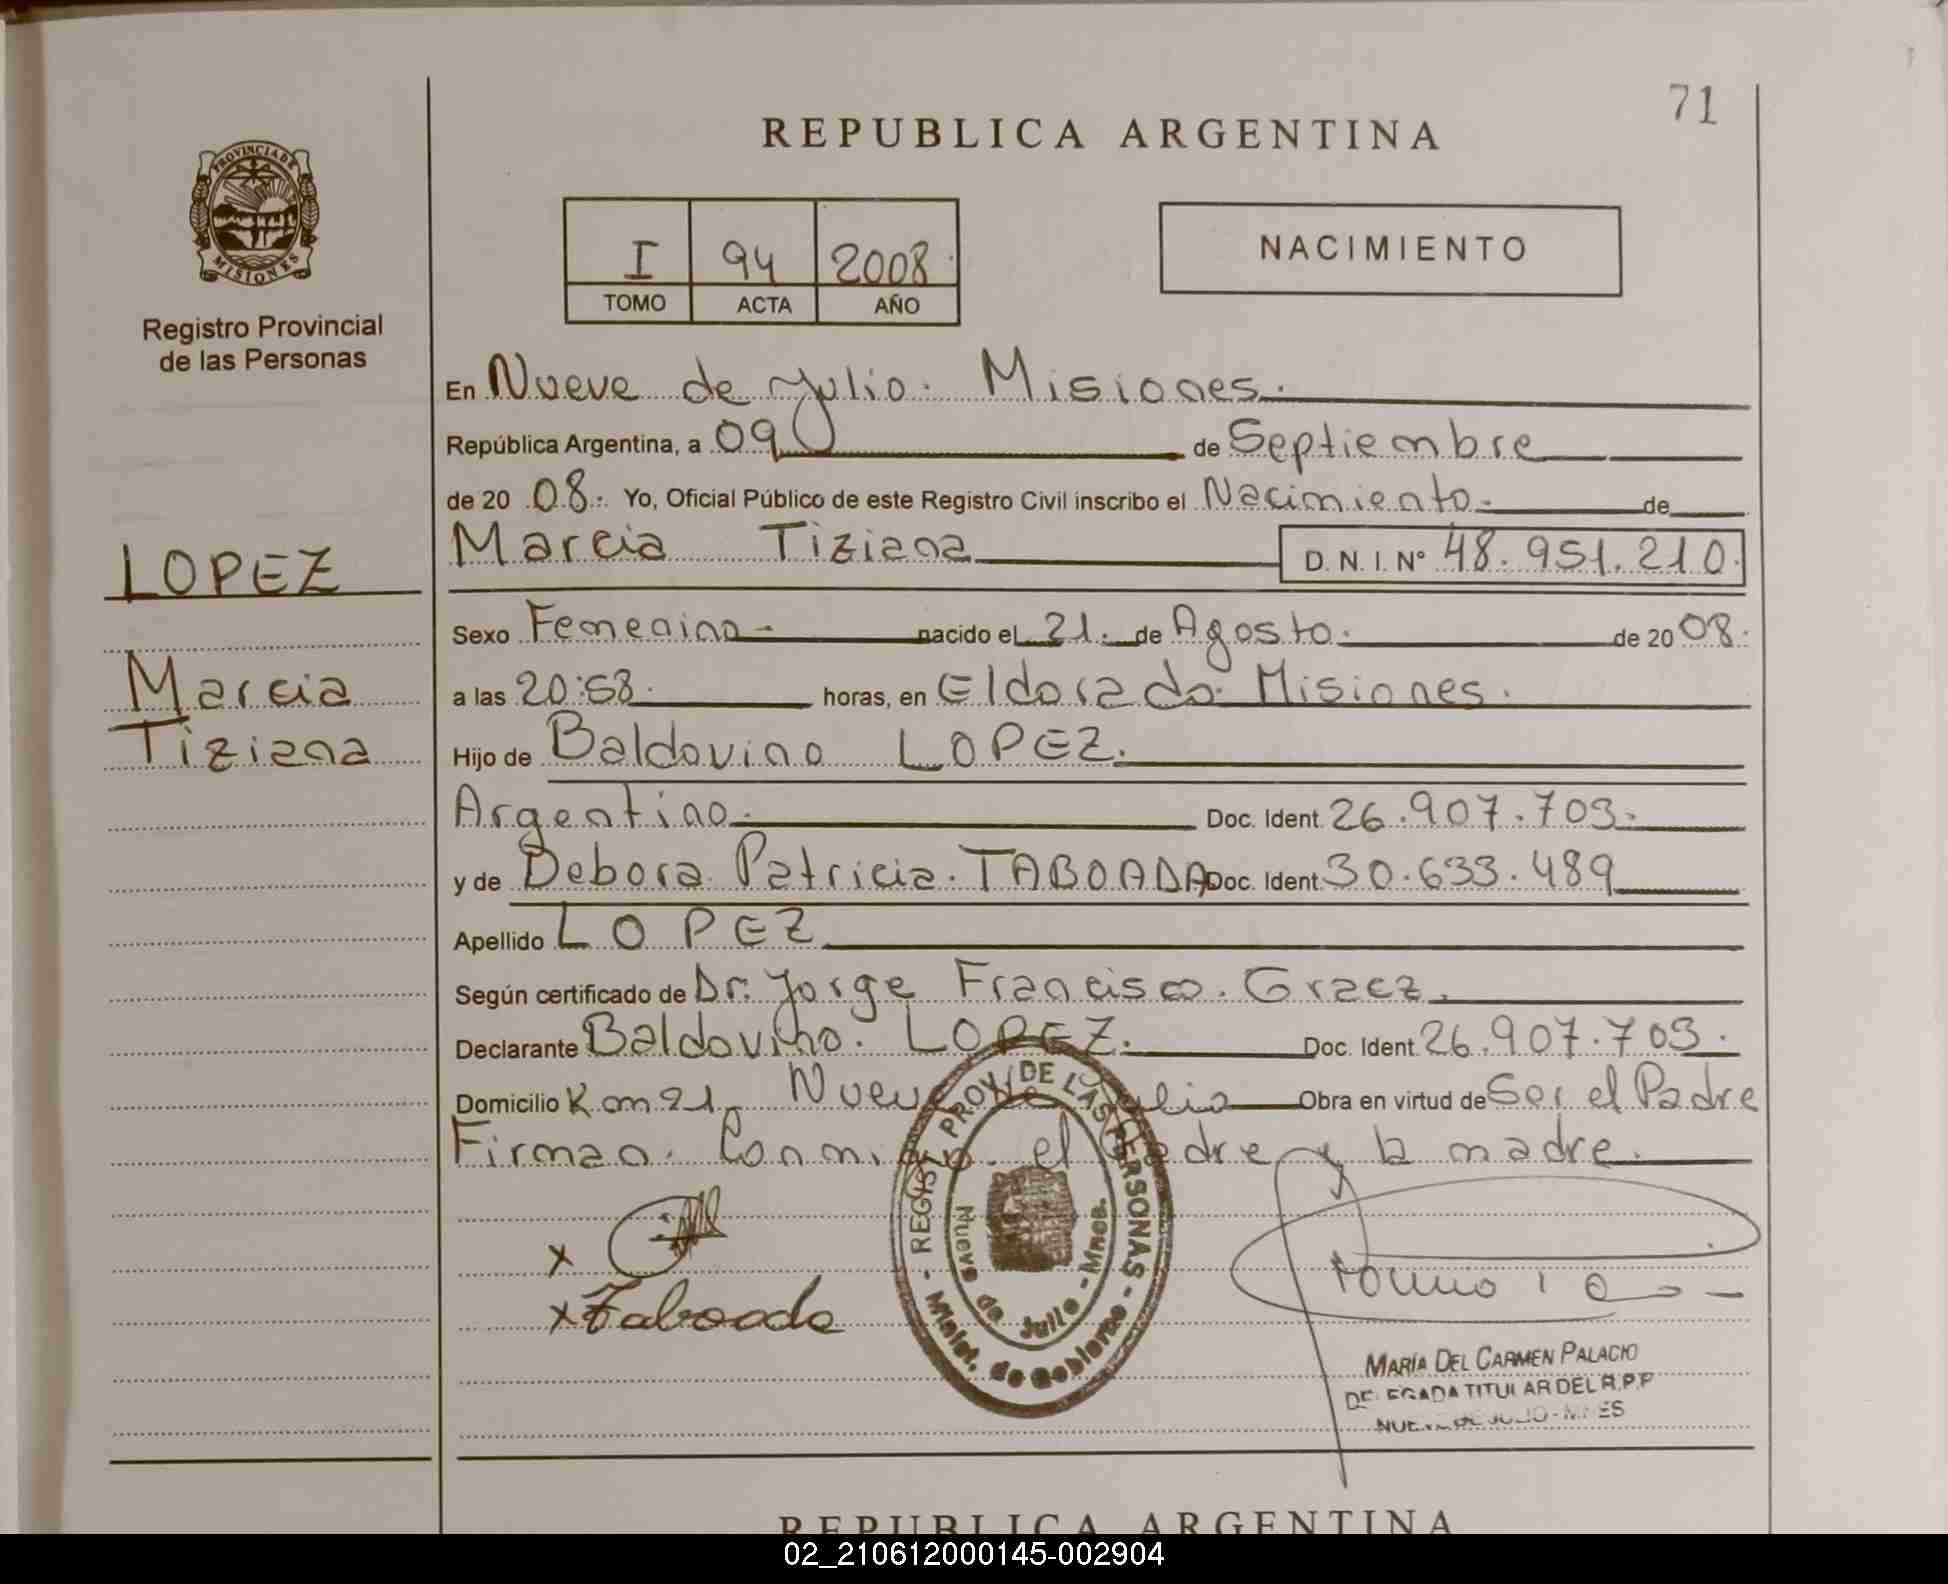 71
REPUBLICA ARGENTINA
PROVINCIA DE
MISIONES
Registro Provincial
de las Personas
I 94 2008
TOMO ACTA AÑO
NACIMIENTO
En Nueve de Julio. Misiones.
República Argentina, a 09 de Septiembre
de 20 08. Yo, Oficial Público de este Registro Civil inscribo el Nacimiento. de
Marcia Tiziana D. N. I. Nº 48.951.210.
LOPEZ
Marcia
Tiziana
Sexo Femenino- nacido el 21. de Agosto. de 20 08.
a las 20:58. horas, en Eldorado. Misiones.
Hijo de Baldovino LOPEZ.
Argentino. Doc. Ident. 26.907.703.
y de Debora Patricia. TABOADA Doc. Ident. 30.633.489
Apellido LOPEZ
Según certificado de Dr. Jorge Francisco. Graez.
Declarante Baldovino. LOPEZ. Doc. Ident. 26.907.703.
Domicilio Km 21- Nueve de Julio Obra en virtud de Ser el Padre
Firman. Conmigo. el Padre y la madre.
x
x Taboada
REGIST. PROV. DE LAS PERSONAS - Minist. de Gobierno -
Nueve de Julio - Mnes.
MARÍA DEL CARMEN PALACIO
DELEGADA TITULAR DEL R.P.P
NUEVE DE JULIO - MNES
REPUBLICA ARGENTINA
02_210612000145-002904